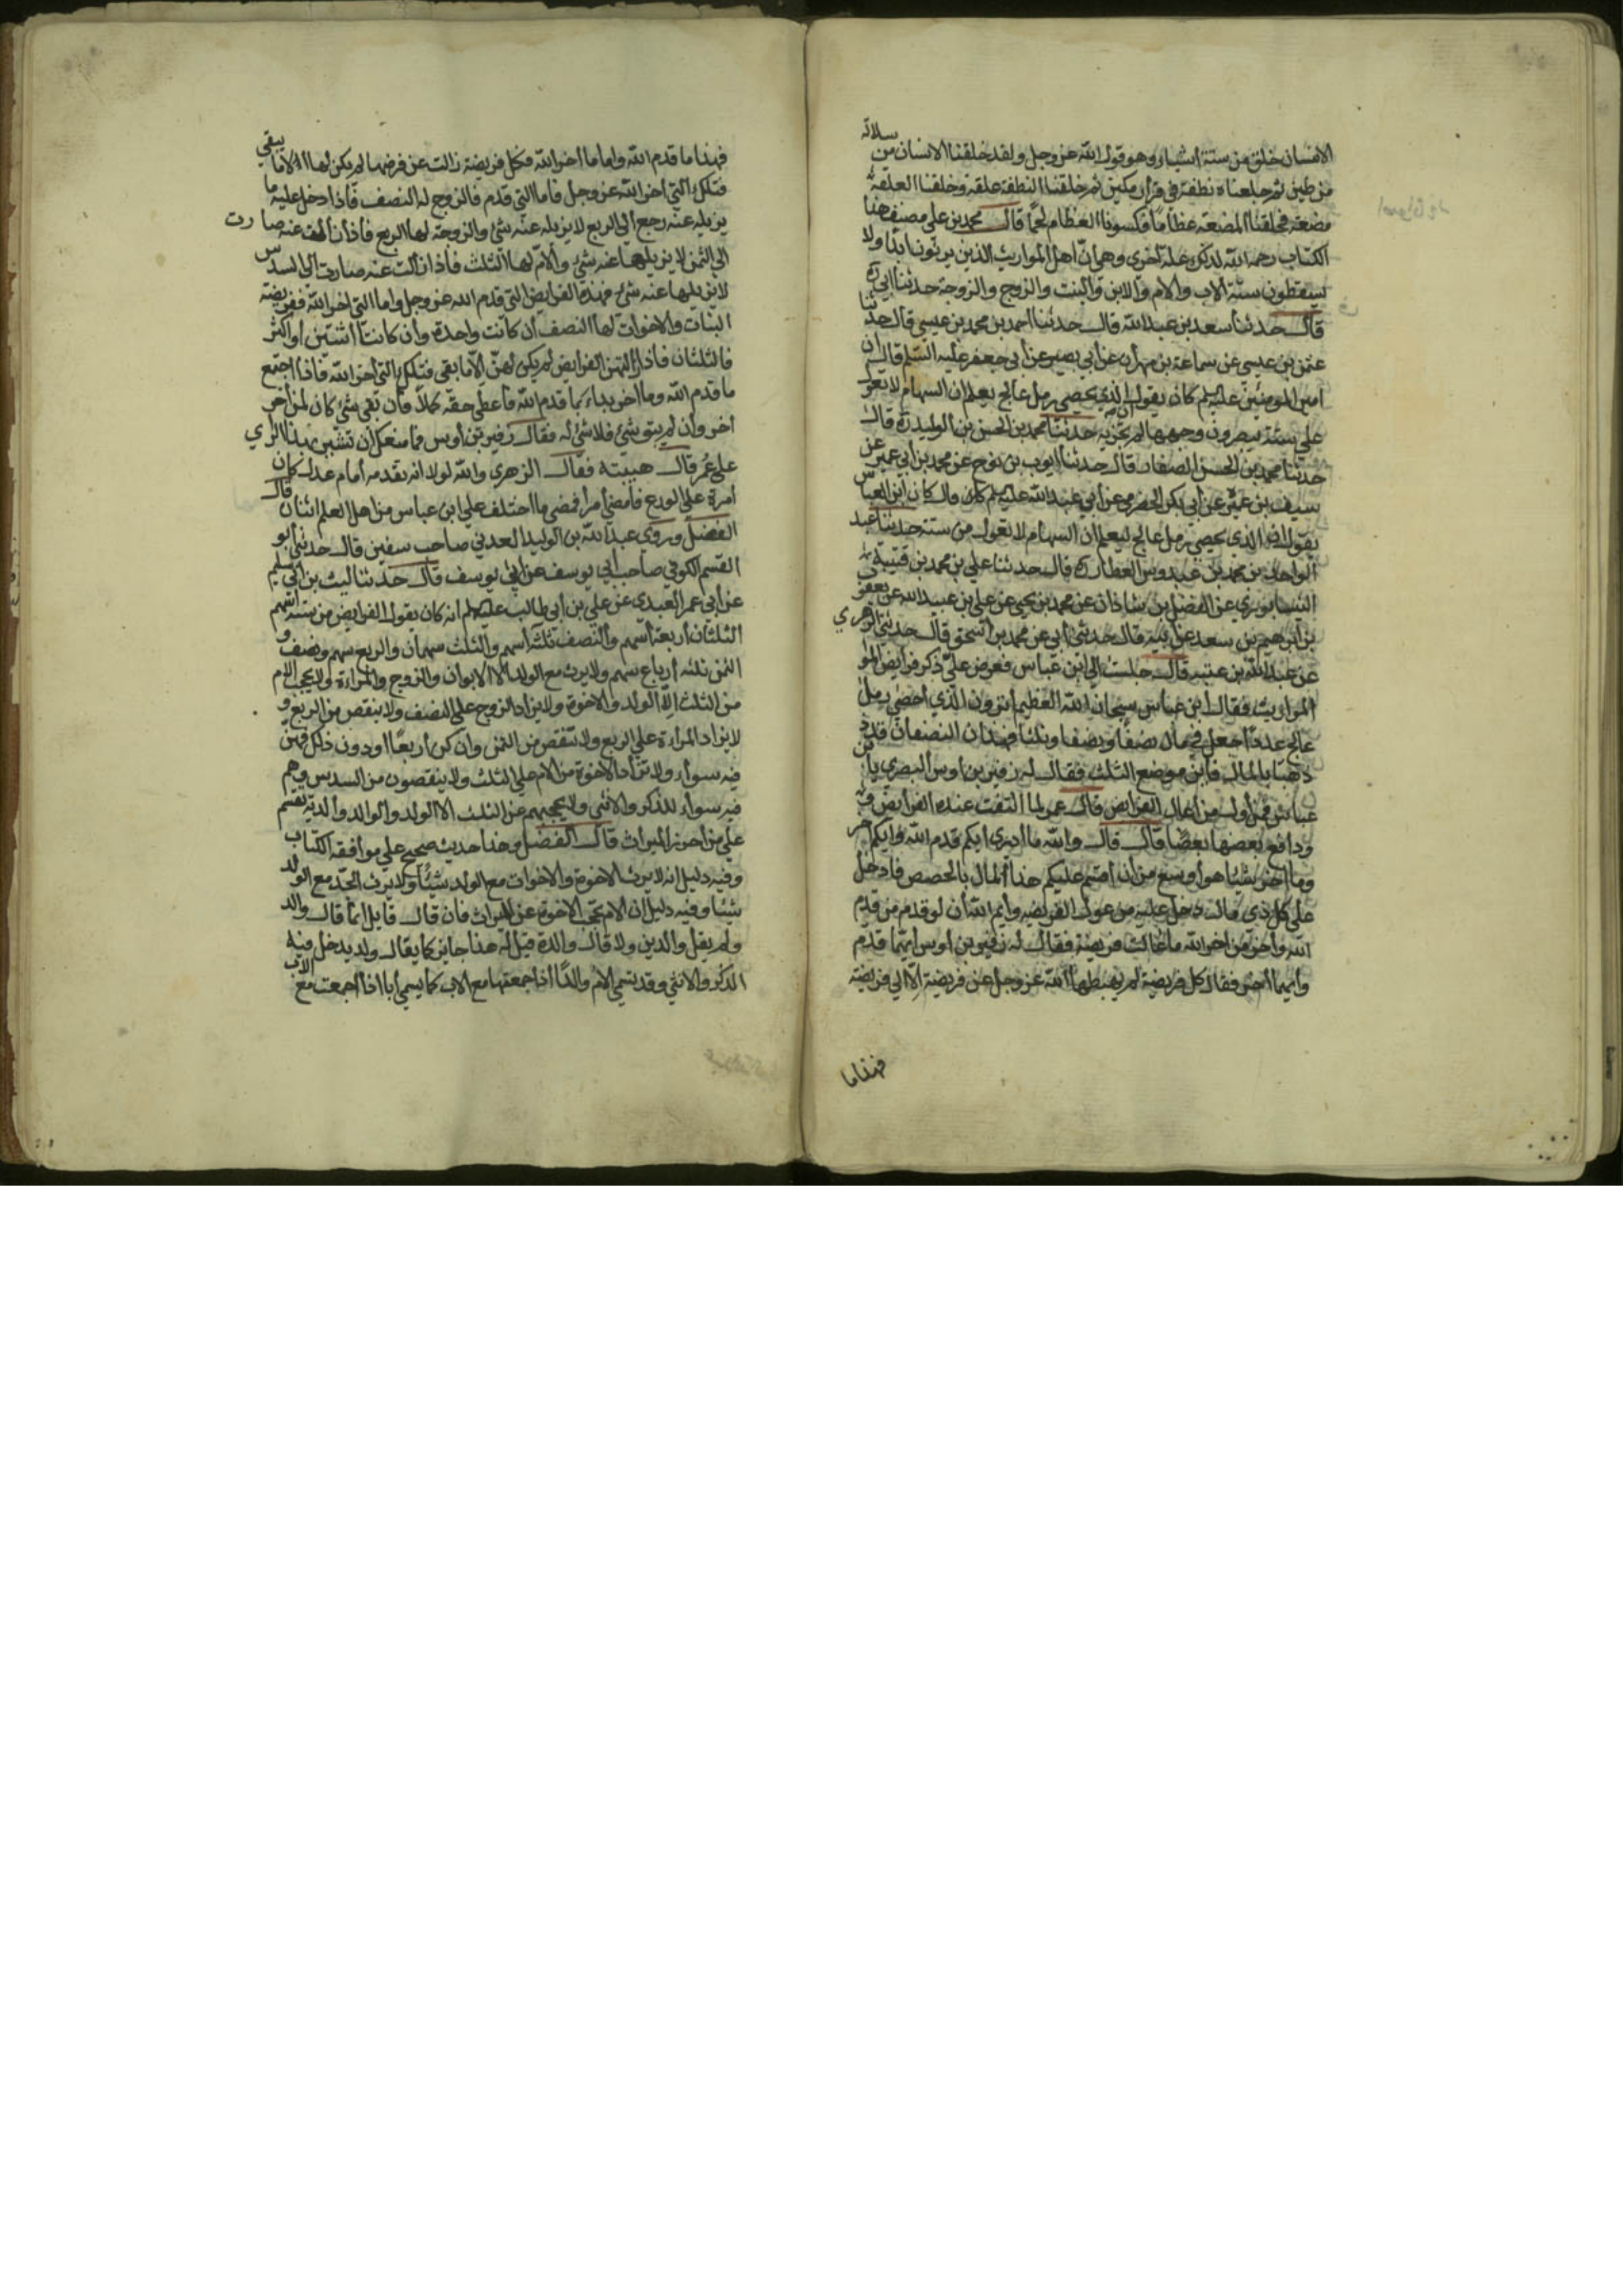 الانسان خلق من ستة اشياء وهو قول الله عز وجل ولقد خلقنا الانسان من سلالة
من طين ثم جعلناه نطفة في قرار مكين ثم خلقنا النطفة علقة فخلقنا العلقة
مضغة فخلقنا المضغة عظاما فكسونا العظام لحما قال محمد بن علي مصنف هذا
الكتاب رحمه الله لذلك علة اخرى وهي ان اهل المواريث الذين يرثون ابدا ولا
يسقطون ستة الاب والام والابن والبنت والزوج والزوجة حدثنا ابي ره
قال حدثنا سعد بن عبد الله قال حدثنا احمد بن محمد بن عيسى قال حدثنا
عثمن بن عيسى عن سماعة بن مهران عن ابي بصير عن ابي جعفر عليه السلم قال ان
امير المومنين عليه السلم كان يقول ان الذي يحصي رمل عالج يعلم ان السهام لا تعول
على ستة يبصرون وجهها لم تجز ستة حدثنا محمد بن الحسن بن الوليد ره قال
حدثنا محمد بن الحسن الصفار قال حدثنا ايوب بن نوح عن محمد بن ابي عمير عن
سيف بن عميرة عن ابي بكر الحضرمي عن ابي عبد الله عليه السلم قال كان ابن العباس
يقول ان الذي يحصي رمل عالج ليعلم ان السهام لا تعول من ستة حدثنا عبد
الواحد بن محمد بن عبدوس العطار ره قال حدثنا علي بن محمد بن قتيبة
النيسابوري عن الفضل بن شاذان عن محمد بن يحيى عن علي بن عبد الله عن يعقوب
بن ابرهيم بن سعد عن ابيه قال حدثني ابي عن محمد بن اسحق قال حدثني الزهري
عن عبيد الله بن عتبة قال جلست الى ابن عباس فعرض علي ذكر فرايض المو
المواريث فقال ابن عباس سبحان الله العظيم اترون الذي احصى رمل
عالج عددا جعل في مال نصفا ونصفا وثلثا فهذان النصفان قد
ذهبا بالمال فاين موضع الثلث فقال له زفير بن اوس البصري يا بن
عباس فمن اول من اعال الفرايض قال عمر لما التفت عنده الفرايض
ودافع بعضها بعضا قال قال والله ما ادري ايكم قدم الله وايكم اخر
وما اجد شيئا هو اوسع من ان اقسم عليكم هذا المال بالحصص فادخل
على كل ذي مال دخل عليه من عول الفريضة وايم الله ان لو قدم من قدم
الله واخر من اخر الله ما عالت فريضة فقال له زفير بن اوس ايهما قدم
وايهما اخر فقال كل فريضة لم يهبطها الله عز وجل عن فريضة الا الى فريضة
فهذا ما
فهذا ما قدم الله واما ما اخر الله فكل فريضة زالت عن فرضها لم يكن لها الا ما يبقى
فتلك التي اخر الله عز وجل فاما التي قدم فالزوج له النصف فاذا دخل عليه ما
يزيله عنه رجع الى الربع لا يزيله عنه شئ والزوجة لها الربع فاذا زالت عنه صارت
الى الثمن لا يزيلها عنه شئ والام لها الثلث فاذا زالت عنه صارت الى السدس
لا يزيلها عنه شئ فهذه الفرايض التي قدم الله عز وجل واما التي اخر الله ففريضة
البنات والاخوات لها النصف ان كانت واحدة وان كانتا اثنتين او اكثر
فالثلثان فاذا ازالتهن الفرايض لم يكن لهن الا ما بقى فتلك التي اخر الله فاذا اجتمع
ما قدم الله وما اخر بداء بما قدم الله فاعطي حقه كملا فان بقي شئ كان لمن اخر
اخر وان لم يبق شئ فلا شئ له فقال زفير بن اوس فما منعك ان تشير بهذا الراي
على عمر قال هيبته فقال الزهري والله لولا انه تقدمه امام عدل كان
امره على الورع فامضى امرا فمضى ما اختلف على ابن عباس من اهل العلم اثنان قال
الفضل وروى عبد الله بن الوليد العدني صاحب سفين قال حدثني ابو
القسم الكوفي صاحب ابي يوسف عن ابي يوسف قال حدثنا ليث بن ابي سليم
عن ابي عمر العبدي عن علي بن ابي طالب عليه السلم انه كان يقول الفرايض من ستة اسهم
الثلثان اربعة اسهم والنصف ثلثة اسهم والثلث سهمان والربع سهم ونصف و
الثمن ثلثة ارباع سهم ولا يرث مع الولد الا الابوان والزوج والمراءة ولا يحجب الام
من الثلث الا الولد والاخوة ولا يزاد الزوج على النصف ولا ينقص من الربع و
لا يزاد المراءة على الربع ولا تنقص من الثمن وان كن اربعا او دون ذلك فهن
فيه سواء ولا تزاد الاخوة من الام على الثلث ولا ينقصون من السدس وهم
فيه سواء للذكر والانثى ولا يحجبهم عن الثلث الا الولد والوالد والدية تقسم
على من احرز الميراث قال الفضل وهذا حديث صحيح على موافقة الكتاب
وفيه دليل انه لا يرث الاخوة والاخوات مع الولد شيئا ولا يرث الجد مع الولد
شيئا وفيه دليل ان الام تحجب الاخوة عن الميراث فان قال قايل انما قال والد
ولم يقل والدين ولا قال والدة قيل له هذا جايز كما يقال ولد يدخل فيه
الذكر والانثى وقد تسمى الام والدا اذا جمعتها مع الاب كما يسمى ابا اذا اجمعت مع الاب